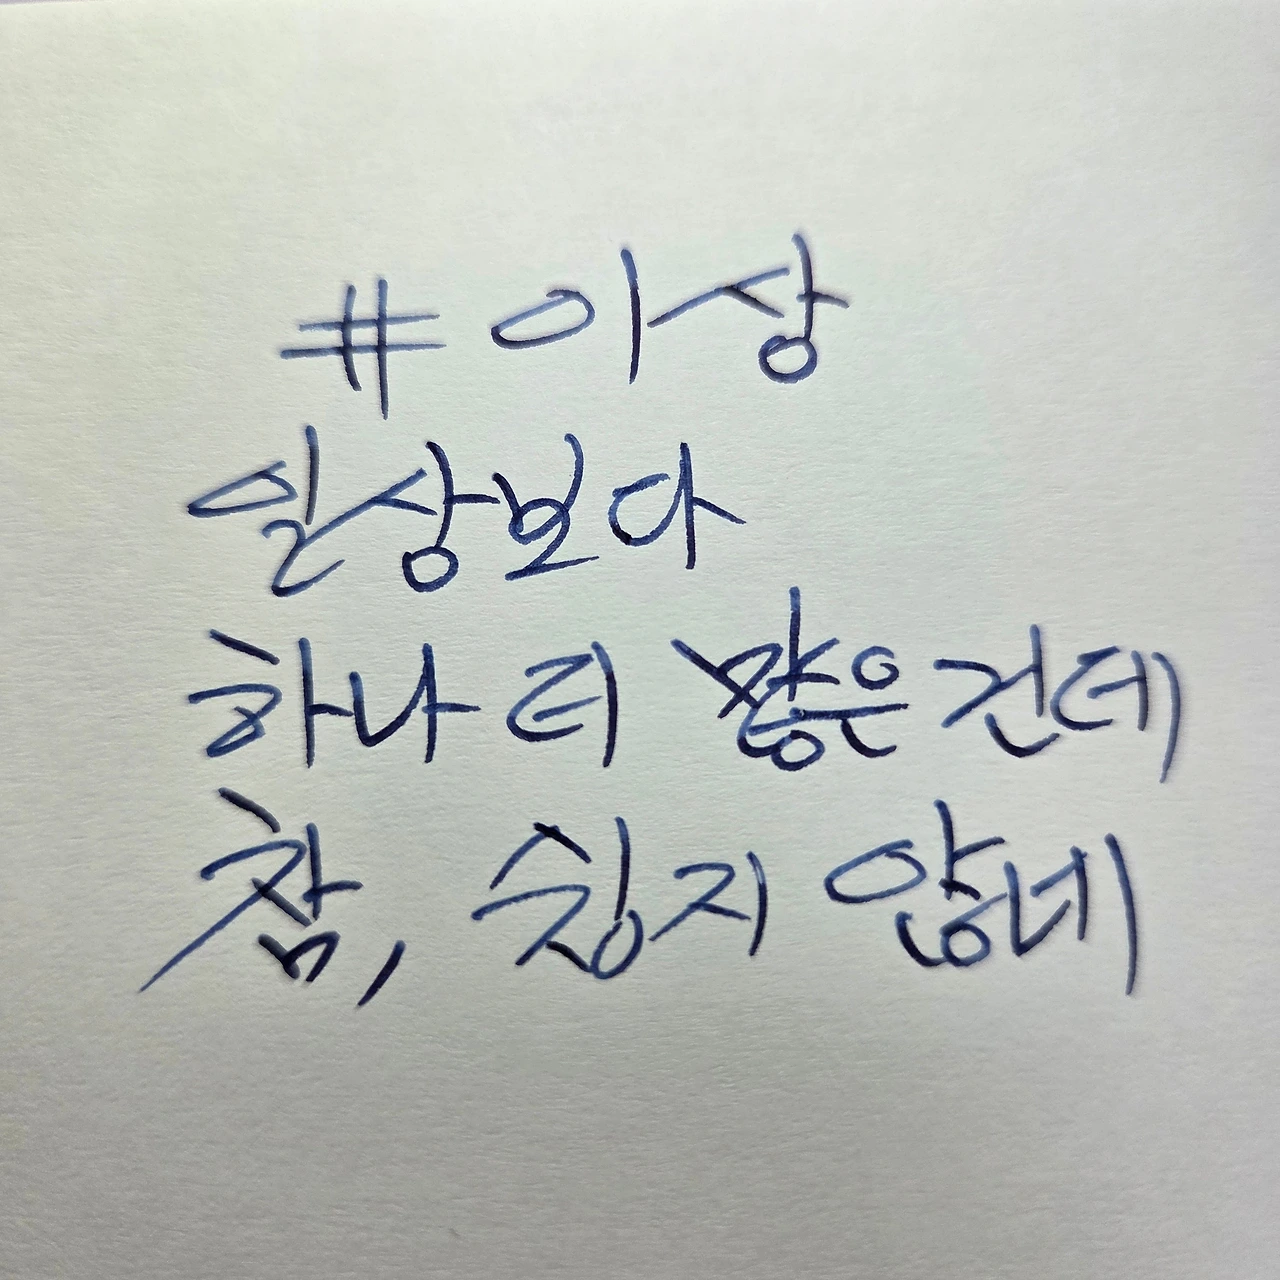 # 이상
일상보다
하나 더 많은 건데
참, 쉽지 않네